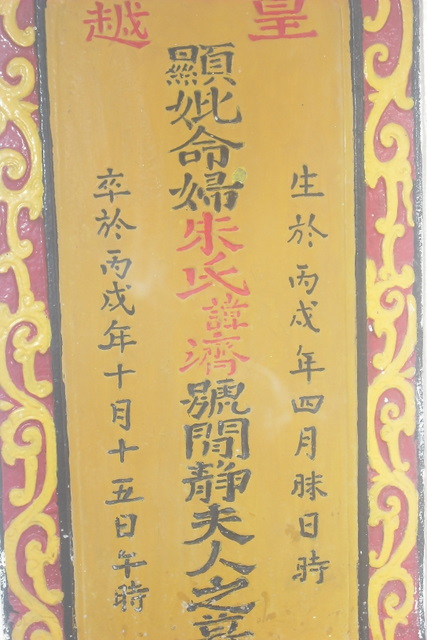 皇越
生於丙戌年四月眛日時
顯妣命婦朱氏諱濟號閒靜夫人之
卒於丙戌年十月十五日午時